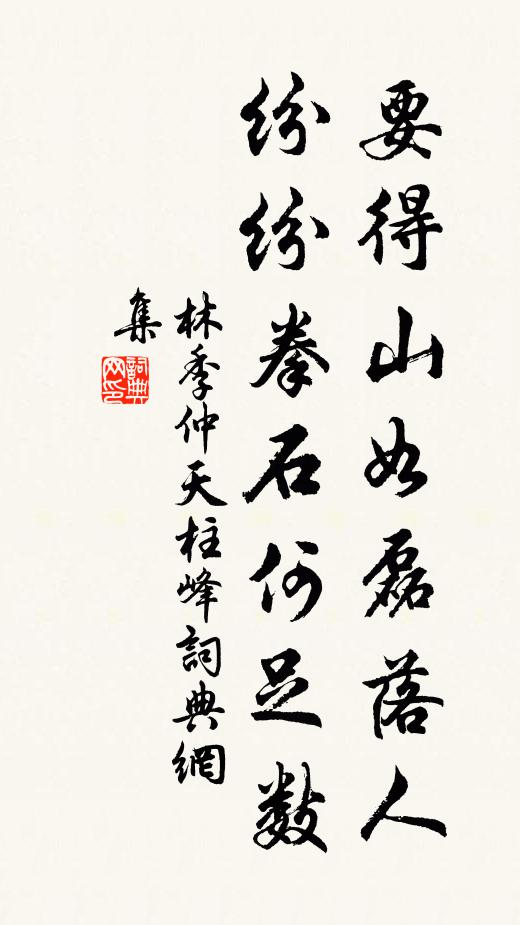 要得山如磊落人
紛紛拳石何足数
林季仲天柱峰詞典網
集
詞典
网印